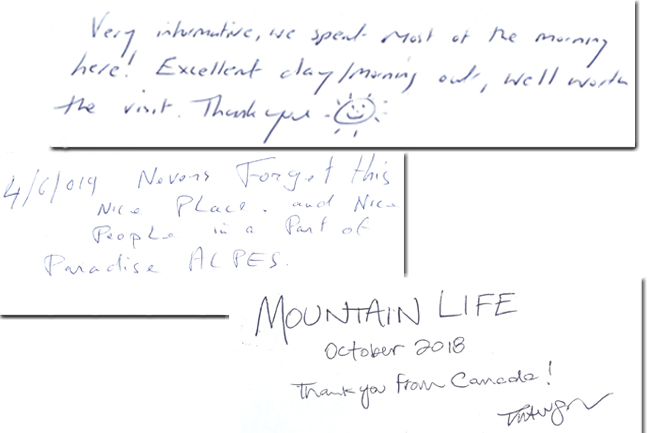 Very informative, we spent most of the morning
here! Excellent day/morning out, well worth
the visit. Thank you
4/6/019 Nevers Forget this
Nice Place. and Nice
People in a Part of
Paradise ALPES.
MOUNTAIN LIFE
October 2018
Thank you from Canada!